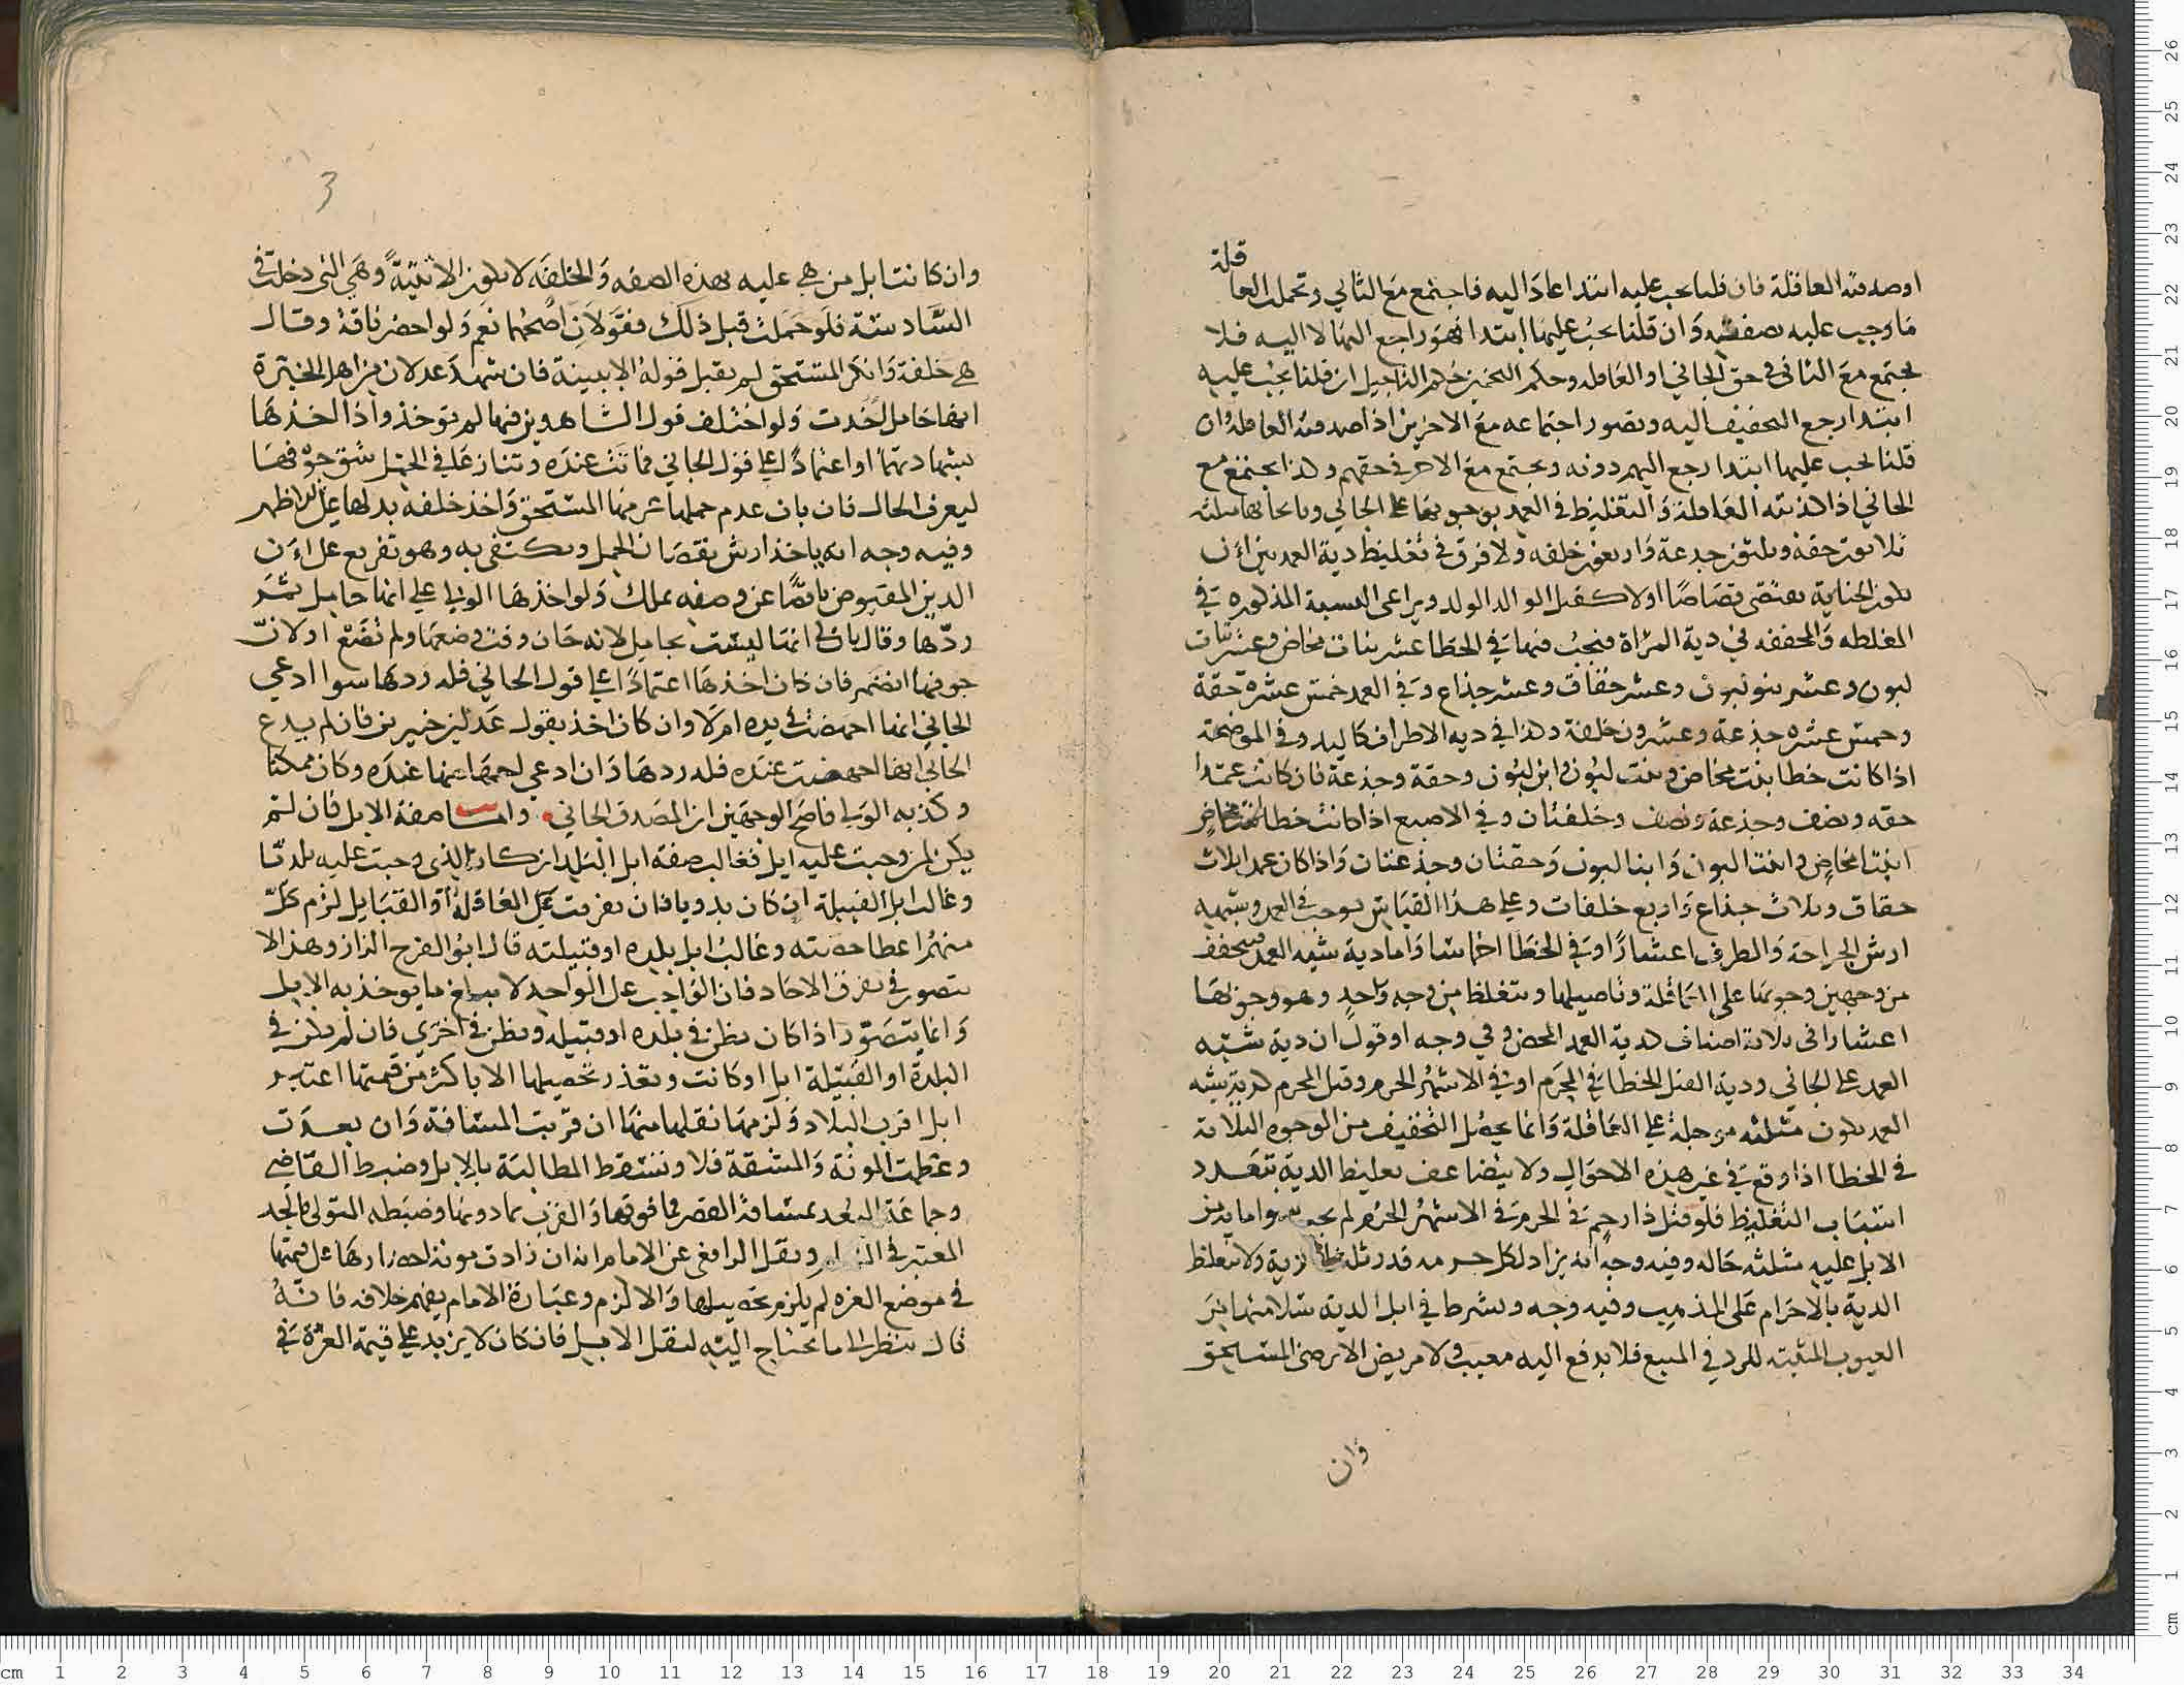 قلة
او صدقته العاقلة فان قلنا يجب عليه ابتدا عاد اليه فاجتمع مع الثاني وتحملت العا
ما وجب عليه بصفته وان قلنا يجب عليها ابتدا فهو راجع اليها لا اليه فلا
يجتمع مع الثاني في حق الجاني او العاقله وحكم التخميس حكم التاجيل ان قلنا يجب عليه
ابتدا رجع التخفيف اليه وتصور اجتماعه مع الاخرين اذا صدقته العاقلة وان
قلنا يجب عليها ابتدا رجع اليهم دونه ويجتمع مع الاخر في حقهم وكذا يجتمع مع
الجاني اذا كذبته العاقلة والتغليظ في العمد بوجوبها على الجاني وبايجابها مثلثه
ثلاثون حقة وثلثون جدعة واربعون خلفه ولا فرق في تغليظ دية العمد بين ان
تكون الجناية تقتضي قصاصا اولا كقتل الوالد الولد ويراعى النسبة المذكوره في
المغلظه والمخففه في دية المراة فيجب فيها في الخطا عشر بنات مخاض وعشر بنات
لبون وعشر بنو لبون وعشر حقاق وعشر جذاع وفي العمد خمس عشرة حقة
وخمس عشره جذعة وعشرون خلفة وكذا في ديه الاطراف كاليد وفي الموضحة
اذا كانت خطا بنت مخاض وبنت لبون وابن لبون وحقة وجذعة فان كانت عمدا
حقه ونصف وجذعة ونصف وخلفتان وفي الاصبع اذا كانت خطا مخاض
ابنتا مخاض وابنتا لبون وابنا لبون وحقتان وجذعتان واذا كان عمدا ثلاث
حقاق وثلاث جذاع واربع خلفات وعلى هذا القياس يوجب في العمد وشبهه
ارش الجراحة والطرف اعشارا وفي الخطا اخماسا واما دية شبه العمد فتخفف
من وجهين وجوبها على العاقلة وتاجيلها وتتغلظ من وجه واحد وهو وجوبها
اعشارا في ثلاثة اصناف كدية العمد المحض وفي وجه او قول ان دية شبه
العمد على الجاني ودية القتل الخطا في المحرم او في الاشهر الحرم وقتل المحرم كدية شبه
العمد تكون مثلثه مؤجلة على العاقلة وانما يحصل التخفيف من الوجوه الثلاثة
في الخطا اذا وقع في غير هذه الاحوال ولا يتضاعف تغليظ الدية بتعدد
اسباب التغليظ فلو قتل ذا رحم في الحرم في الاشهر الحرم لم يجب سوا ما بين
الابل عليه مثلثه حاله وفيه وجه انه يزاد لكل حرمه قدر ثلث الدية ولا تغلظ
الدية بالاحرام على المذهب وفيه وجه ويشرط في ابل الدية سلامتها من
العيوب المثبته للرد في المبيع فلا يدفع اليه معيب ولا مريض الا برضى المستحق
وان
3
وان كانت ابل من هي عليه بهذه الصفه والخلفه لا تكون الا ثنية وهي التي دخلت في
السادسة فلو حملت قبل ذلك فقولان اصحهما نعم ولو احضر ناقة وقال
هي خلفة وانكر المستحق لم يقبل قوله الا ببينة فان شهد عدلان من اهل الخبرة
انها حامل اخدت ولو اختلف قول الشاهدين فيها لم توخذ واذا اخذها
بشهادتهما او اعتمادا على قول الجاني فماتت عنده وتنازعا في الحمل شق جوفها
ليعرف الحال فان بان عدم حملها غرمها المستحق واخذ خلفه بدلها على الاظهر
وفيه وجه انه ياخذ ارش نقصان الحمل ويكتفى به وهو تفريع على ان
الدين المقبوض ناقصا عن وصفه يملك ولو اخذها الولي على انها حامل ثم
ردها وقال بان لي انها ليست بحامل لانه حان وقت وضعها ولم تضع او لان
جوفها انضمر فان كان اخذها اعتمادا على قول الجاني فله ردها سوا ادعى
الجاني انها اجهضت في يده ام لا وان كان اخذ بقول عدلين خبيرين فان لم يدع
الجاني انها اجهضت عنده فله ردها وان ادعى اجهاضها عنده وكان ممكنا
وكذبه الولي فاصح الوجهين ان المصدق الجاني واما صفة الابل فان لم
يكن لمن وجبت عليه ابل فغالب صفة ابل البلد ان كان الذي وجبت عليه بلديا
وغالب ابل القبيلة ان كان بدويا فان تفرقت العاقلة او القبايل لزم كل
منهم اعطا حصته وغالب ابل بلده او قبيلته قال ابو الفرج الزاز وهذا لا
يتصور في تفرق الاحاد فان الواجب على الواحد لا يبلغ ما يوخذ به الابل
وانما يتصور اذا كان بطن في بلده او قبيله وبطن في اخرى فان لم يكن في
البلدة او القبيلة ابل او كانت وتعذر تحصيلها الا باكثر من قيمتها اعتبر
ابل اقرب البلاد ولزمها نقلها منها ان قربت المسافة وان بعدت
وعظمت المونة والمشقة فلا وتسقط المطالبة بالابل وضبط القاضي
وجماعة البعد بمسافة القصر فما فوقها والقرب بما دونها وضبطه المتولى بالحد
المعتبر في ونقل الرافعي عن الامام انه ان زادت مونة احضارها على قيمتها
في موضع العزه لم يلزم تحصيلها والا لزم وعبارة الامام تفهم خلافه فانه
قال ينظر الى ما يحتاج اليه لنقل الابل فان كان لا يزيد على قيمة العزة في